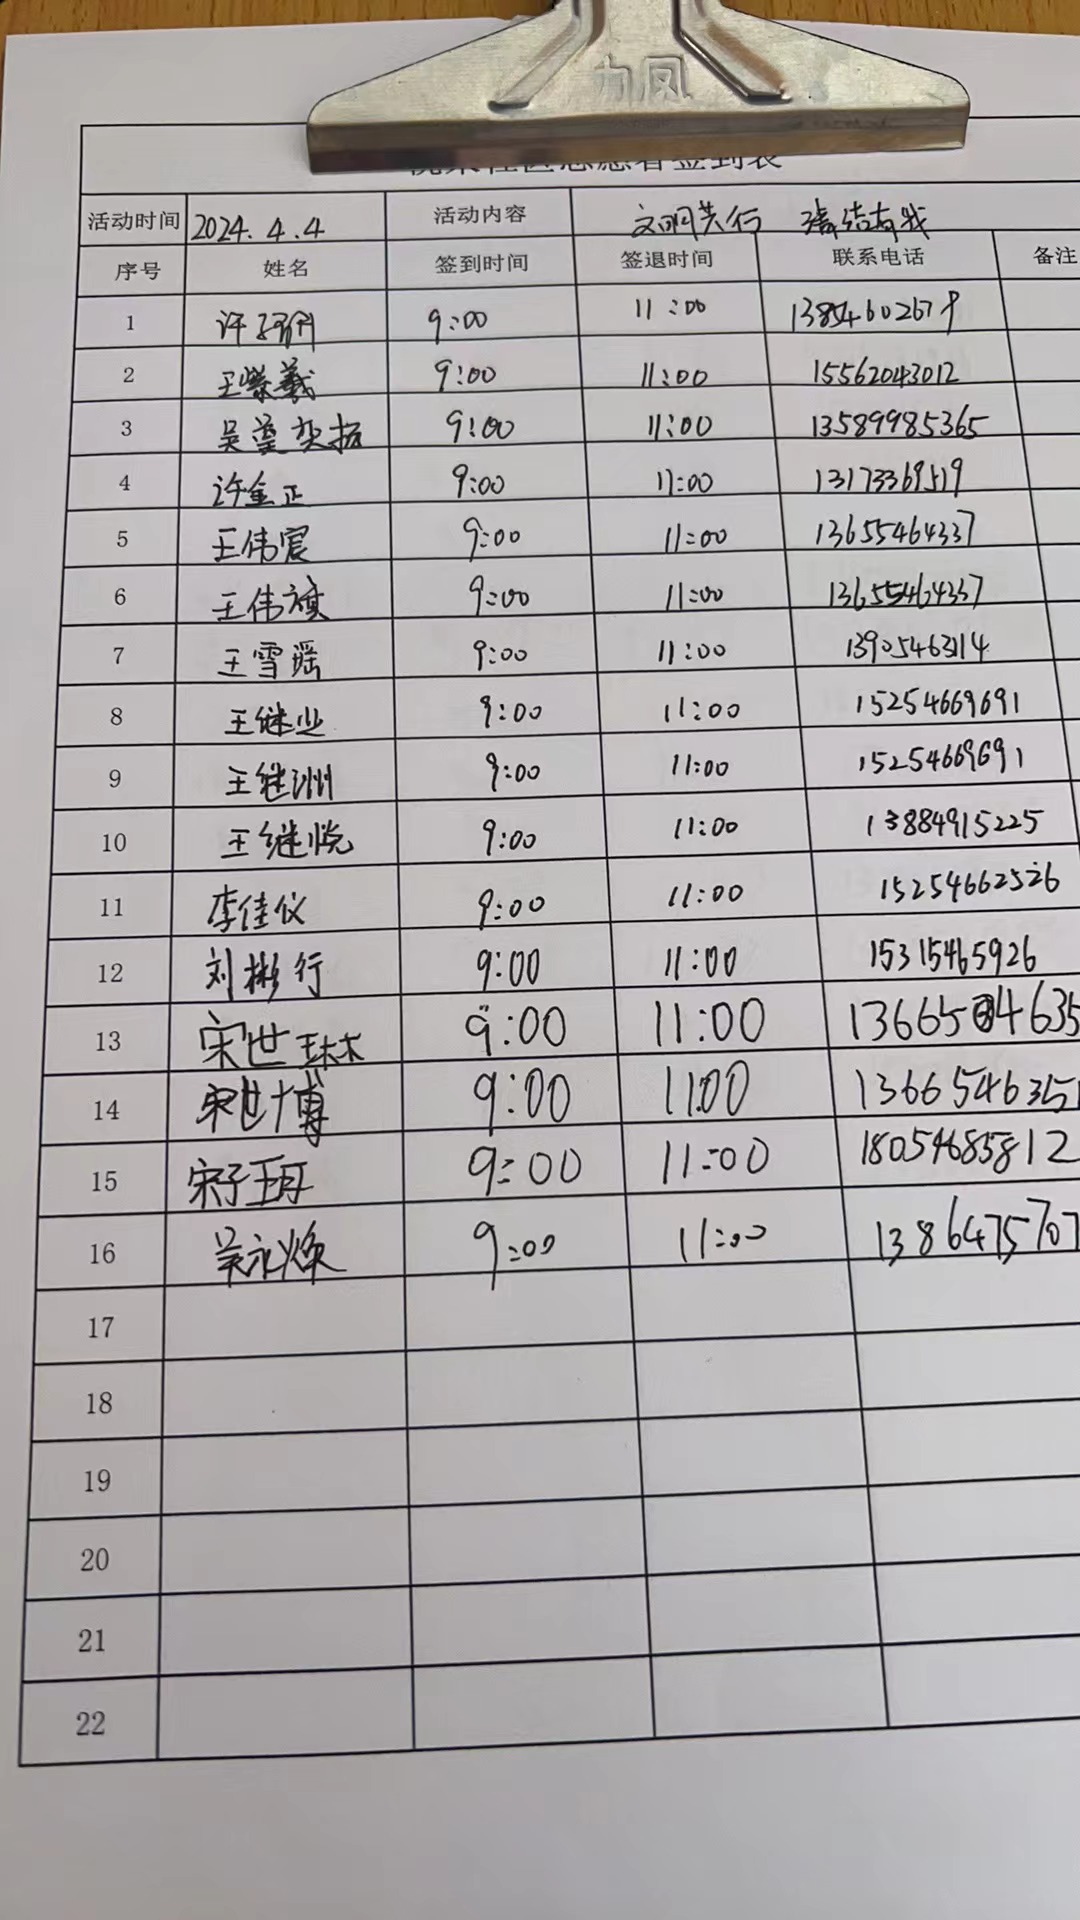 力凤
社区志愿者签到表
活动时间 2024.4.4 活动内容 文明先行 清结有我
序号 姓名 签到时间 签退时间 联系电话 备注
1 9:00 11:00 1385460267
2 王紫羲 9:00 11:00 15562043012
3 吴 9:00 11:00 13589985365
4 许金正 9:00 11:00 13173369519
5 王伟宸 9:00 11:00 13655464337
6 王伟旗 9:00 11:00 13655464337
7 王雪瑶 9:00 11:00 13905463114
8 王继业 9:00 11:00 15254669691
9 王继洲 9:00 11:00 15254669691
10 王继悦 9:00 11:00 13884915225
11 李佳仪 9:00 11:00 15254662526
12 刘彬行 9:00 11:00 15315465926
13 宋世琳 9:00 11:00 136654635
14 宋世博 9:00 11:00 1366546351
15 宋子珃 9:00 11:00 18054685812
16 吴永焕 9:00 11:00 1386475707
17
18
19
20
21
22